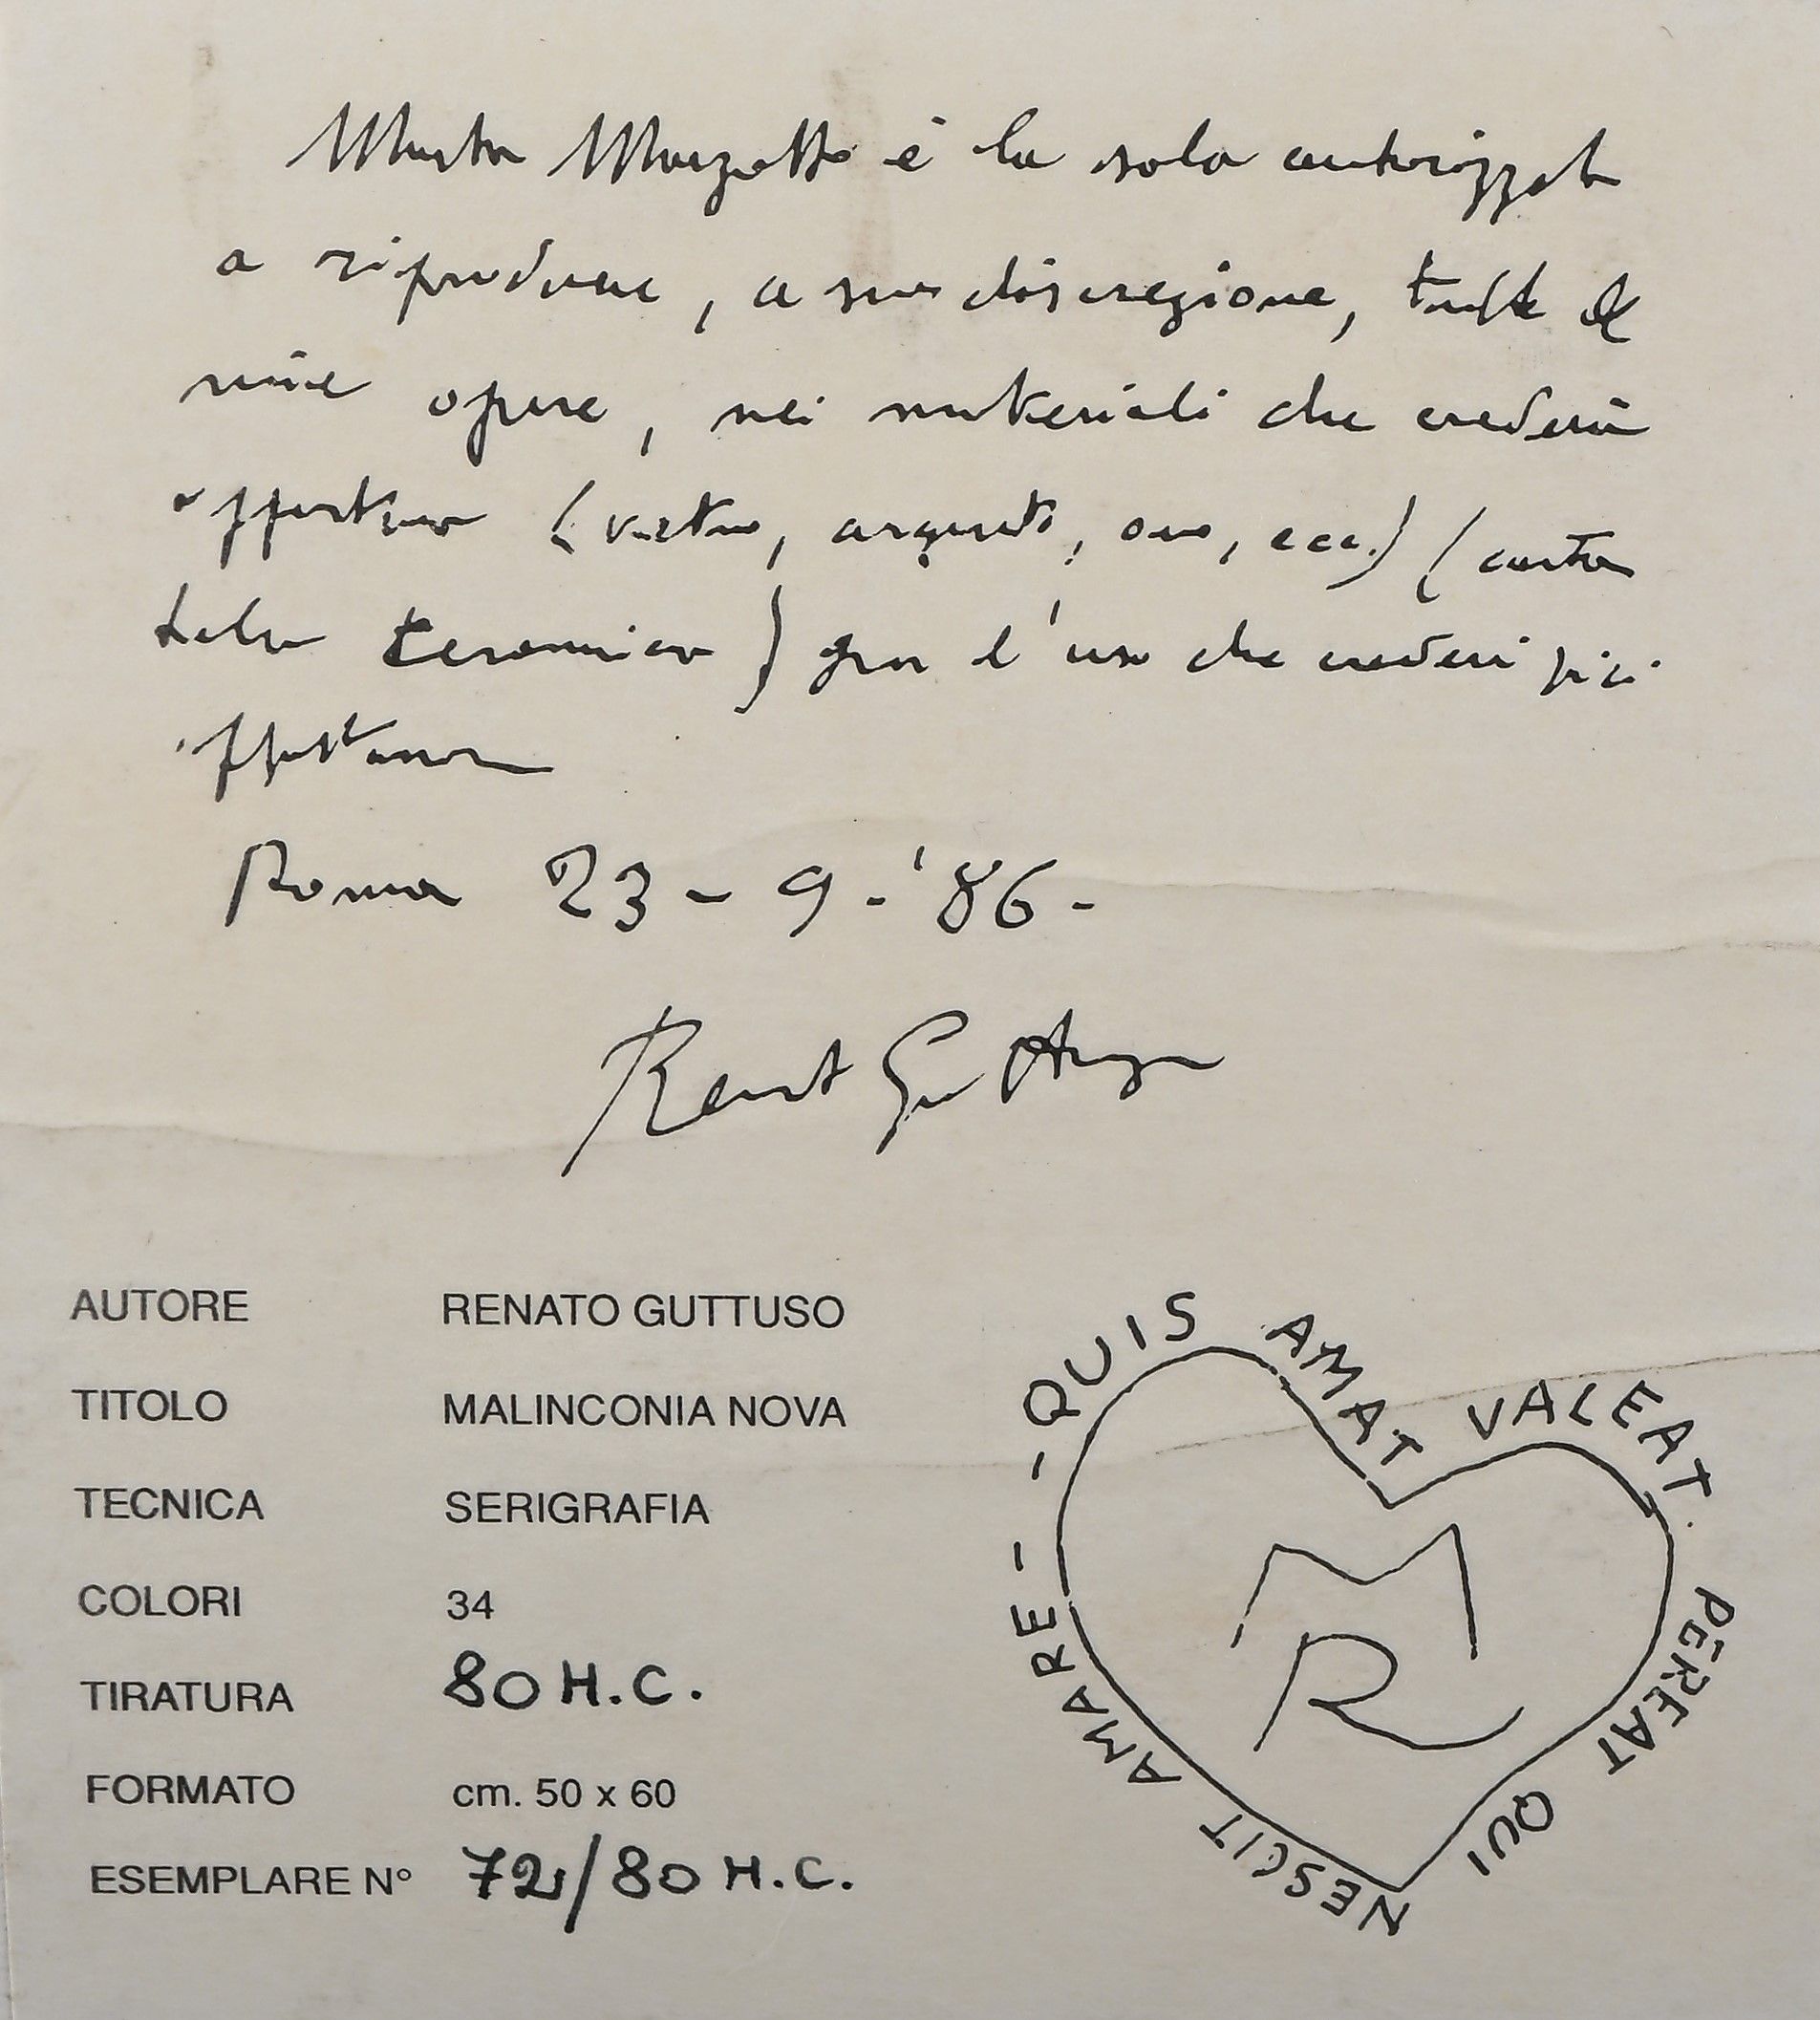 Marta Marzotto è la sola autorizzata
a riprodurre, a sua discrezione, tutte le
mie opere, nei materiali che crederà
opportuno (vetro, argento, oro, ecc.) (carta
tela ceramica) per l'uso che crederà più
opportuno
Roma 23 - 9 - '86 -
Renato Guttuso
AUTORE RENATO GUTTUSO
TITOLO MALINCONIA NOVA
TECNICA SERIGRAFIA
COLORI 34
TIRATURA 80 H.C.
FORMATO cm. 50 x 60
ESEMPLARE N° 72/80 H.C.
- QUIS AMAT VALEAT. PEREAT QUI NESCIT AMARE -
M
R